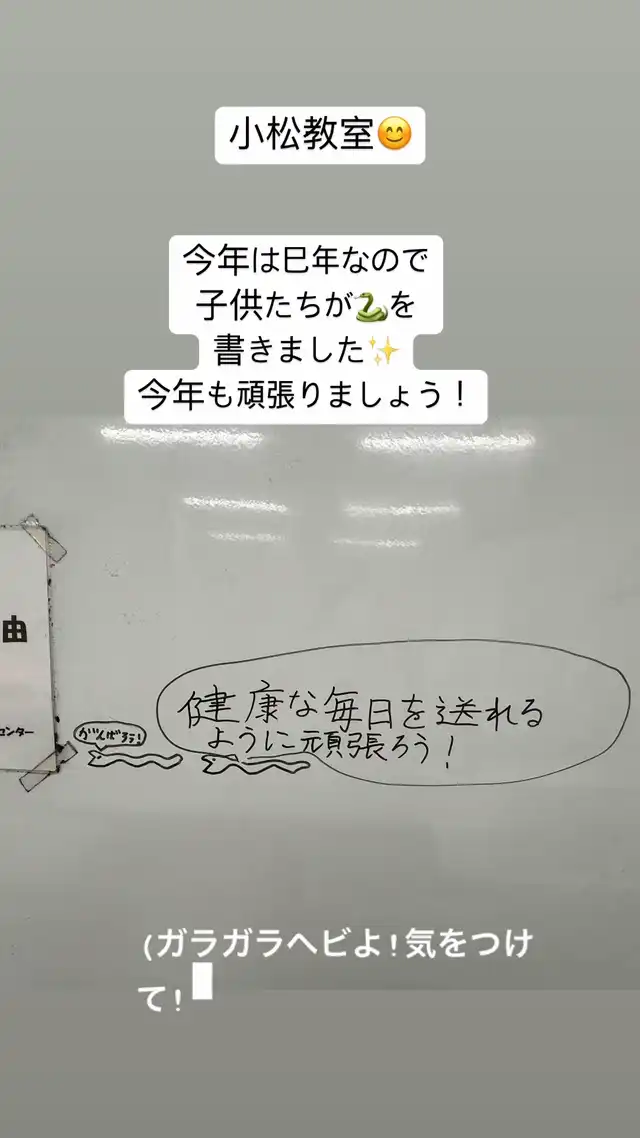 小松教室😊
今年は巳年なので
子供たちが🐍を
書きました✨
今年も頑張りましょう！
由
センター
がんばろう!
健康な毎日を送れる
ように頑張ろう!
(ガラガラヘビよ!気をつけ
て!